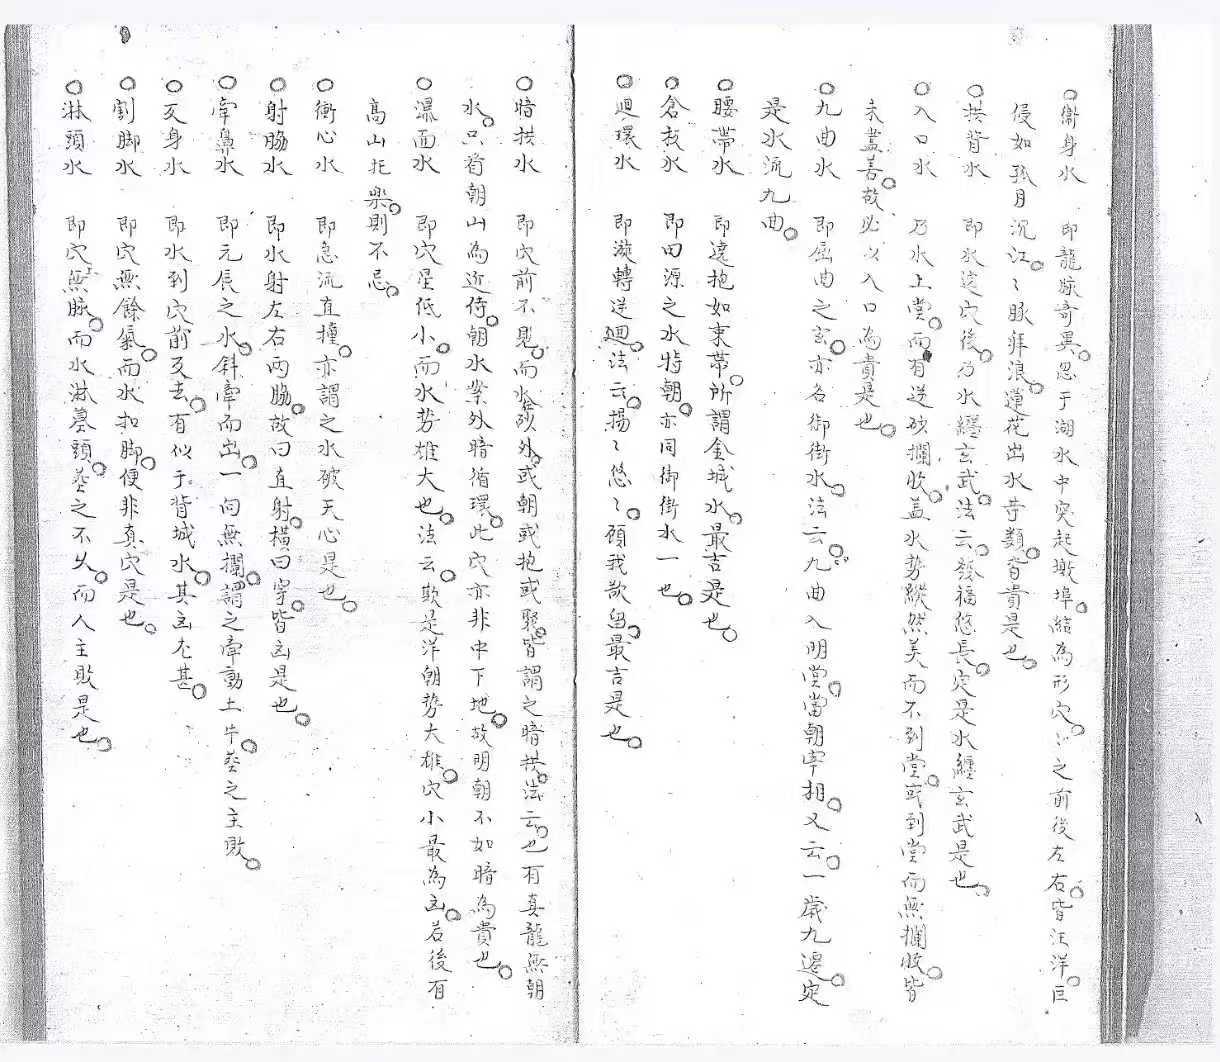 ○衛身水　即龍脉奇異。忽于湖水中突起墩埠。結為形穴。〻之前後左右。皆汪洋。巨
浸如孤月沉江。〻豚拜浪。蓮花出水等類。皆貴是也。
○拱背水　即水遶穴後。乃水纏玄武。法云。發福悠長。定是水纏玄武是也。
○入口水　乃水上堂。而有逆砂攔收。蓋水势縱然美而不到堂。或到堂而無攔收。皆
未盡善。故必以入口為貴是也。
○九曲水　即屈曲之玄。亦名御街水。法云。九曲入明堂。當朝宰相。又云。一歲九遷。定
是水流九曲。
○腰帶水　即遶抱如束帶。所謂金城水。最吉是也。
○倉板水　即田源之水特朝。亦同御街水一也。
○廻環水　即漩轉逆廻。法云。揚〻悠〻。顧我欲畄。最吉是也。
○暗拱水　即穴前不見。而水砂外。或朝或抱或聚。皆謂之暗拱。法云。也有真龍無朝
水。只看朝山為近侍。朝水案外暗循環。此穴亦非中下地。故明朝不如暗為貴也。
○瀑面水　即穴星低小。而水势雄大也。法云。欺是洋朝势大雄。穴小最為凶。若後有
高山托樂。則不忌。
○衝心水　即急流直撞。亦謂之水破天心是也。
○射脇水　即水射左右两脇。故曰直射。橫曰穿。皆凶是也。
○牽鼻水　即元辰之水。斜牽而出。一向無攔。謂之牽動土牛。葬之主敗。
○反身水　即水到穴前反去。有似于背城水。其凶尤甚。
○割脚水　即穴無餘氣。而水扣脚。便非真穴是也。
○淋頭水　即穴無脉。而水淋墓頭。葬之不久。而人主敗是也。